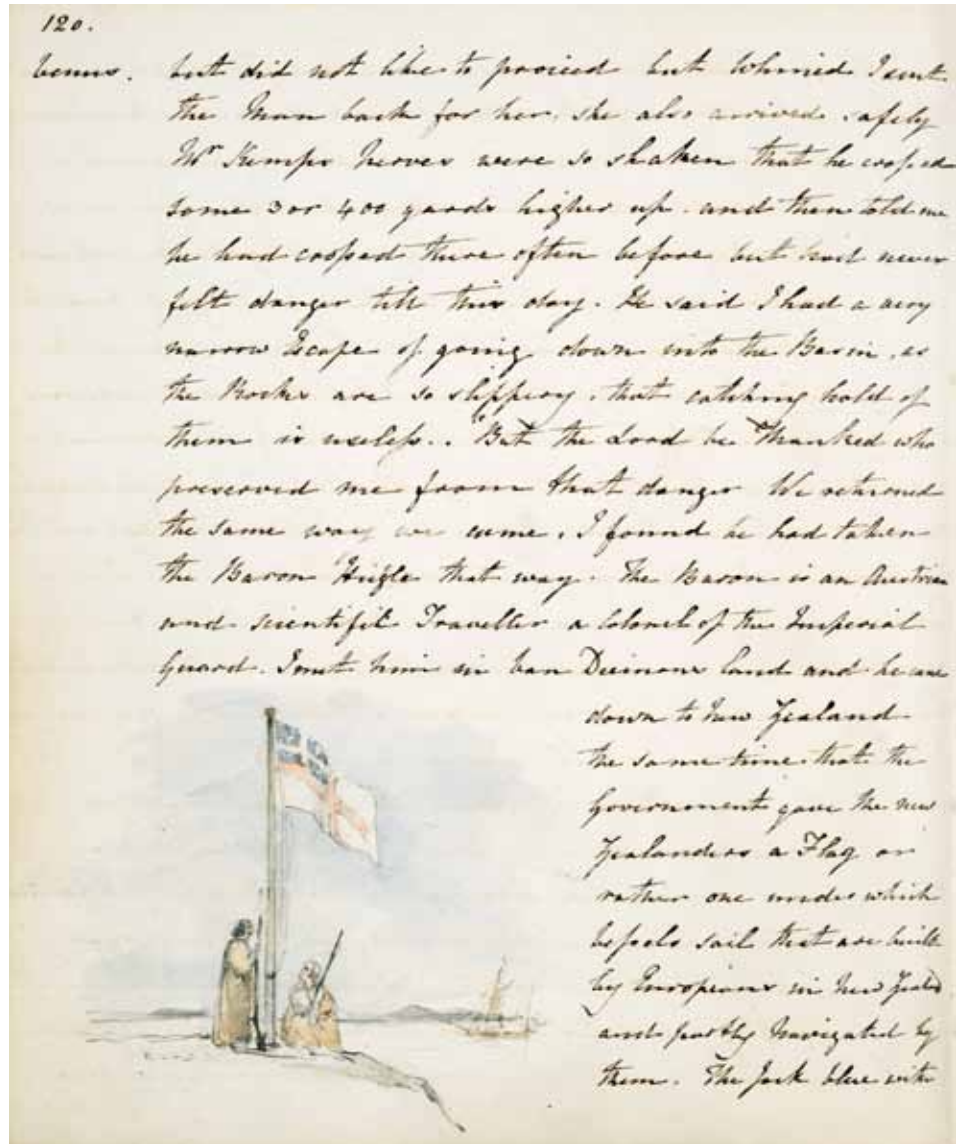 120.
but did not like to proceed but whined I sent
the Man back for her. she also arrived safely
Mr Kemps Nerves were so shaken that he crossed
some 3 or 400 yards higher up. and then told me
he had crossed there often before but had never
felt danger till this day. He said I had a very
narrow Escape of going down into the Basin, as
the Rocks are so slippery, that catching hold of
them is useless.. "But the Lord be Thanked who
preserved me from that danger We returned
the same way we came. I found he had taken
the Baron Hugle that way. The Baron is an Austrian
and scientific Traveller a Colonel of the Imperial
Guard. I met him in Van Diemans land and he came
down to New Zealand
the same time that the
Government gave the new
Zealanders a Flag or
rather one under which
vessels sail that are built
by Europeans in New Zeald
and partly Navigated by
them. The Jack blue with